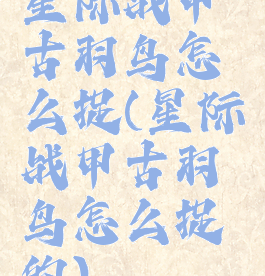 星际战甲
古羽鸟怎
么捉(星际
战甲古羽
鸟怎么捉
的)